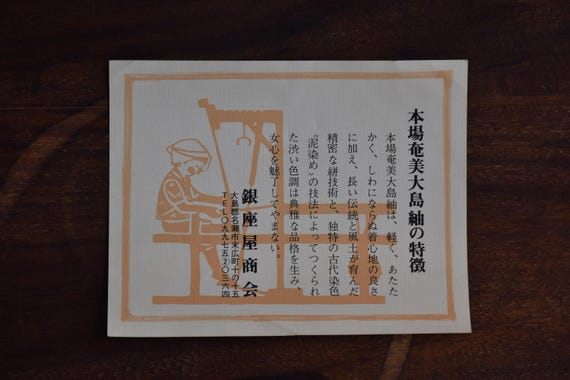 本場奄美大島紬の特徴
本場奄美大島紬は、軽く、あたた
かく、しわにならぬ着心地の良さ
に加え、長い伝統と風土が育んだ
精密な絣技術と、独特の古代染色
"泥染め"の技法によってつくられ
た渋い色調は典雅な品格を生み、
女心を魅了してやまない。
銀座屋商会
大島郡名瀬市末広町十の十五
TEL〇九九七五②〇三六四